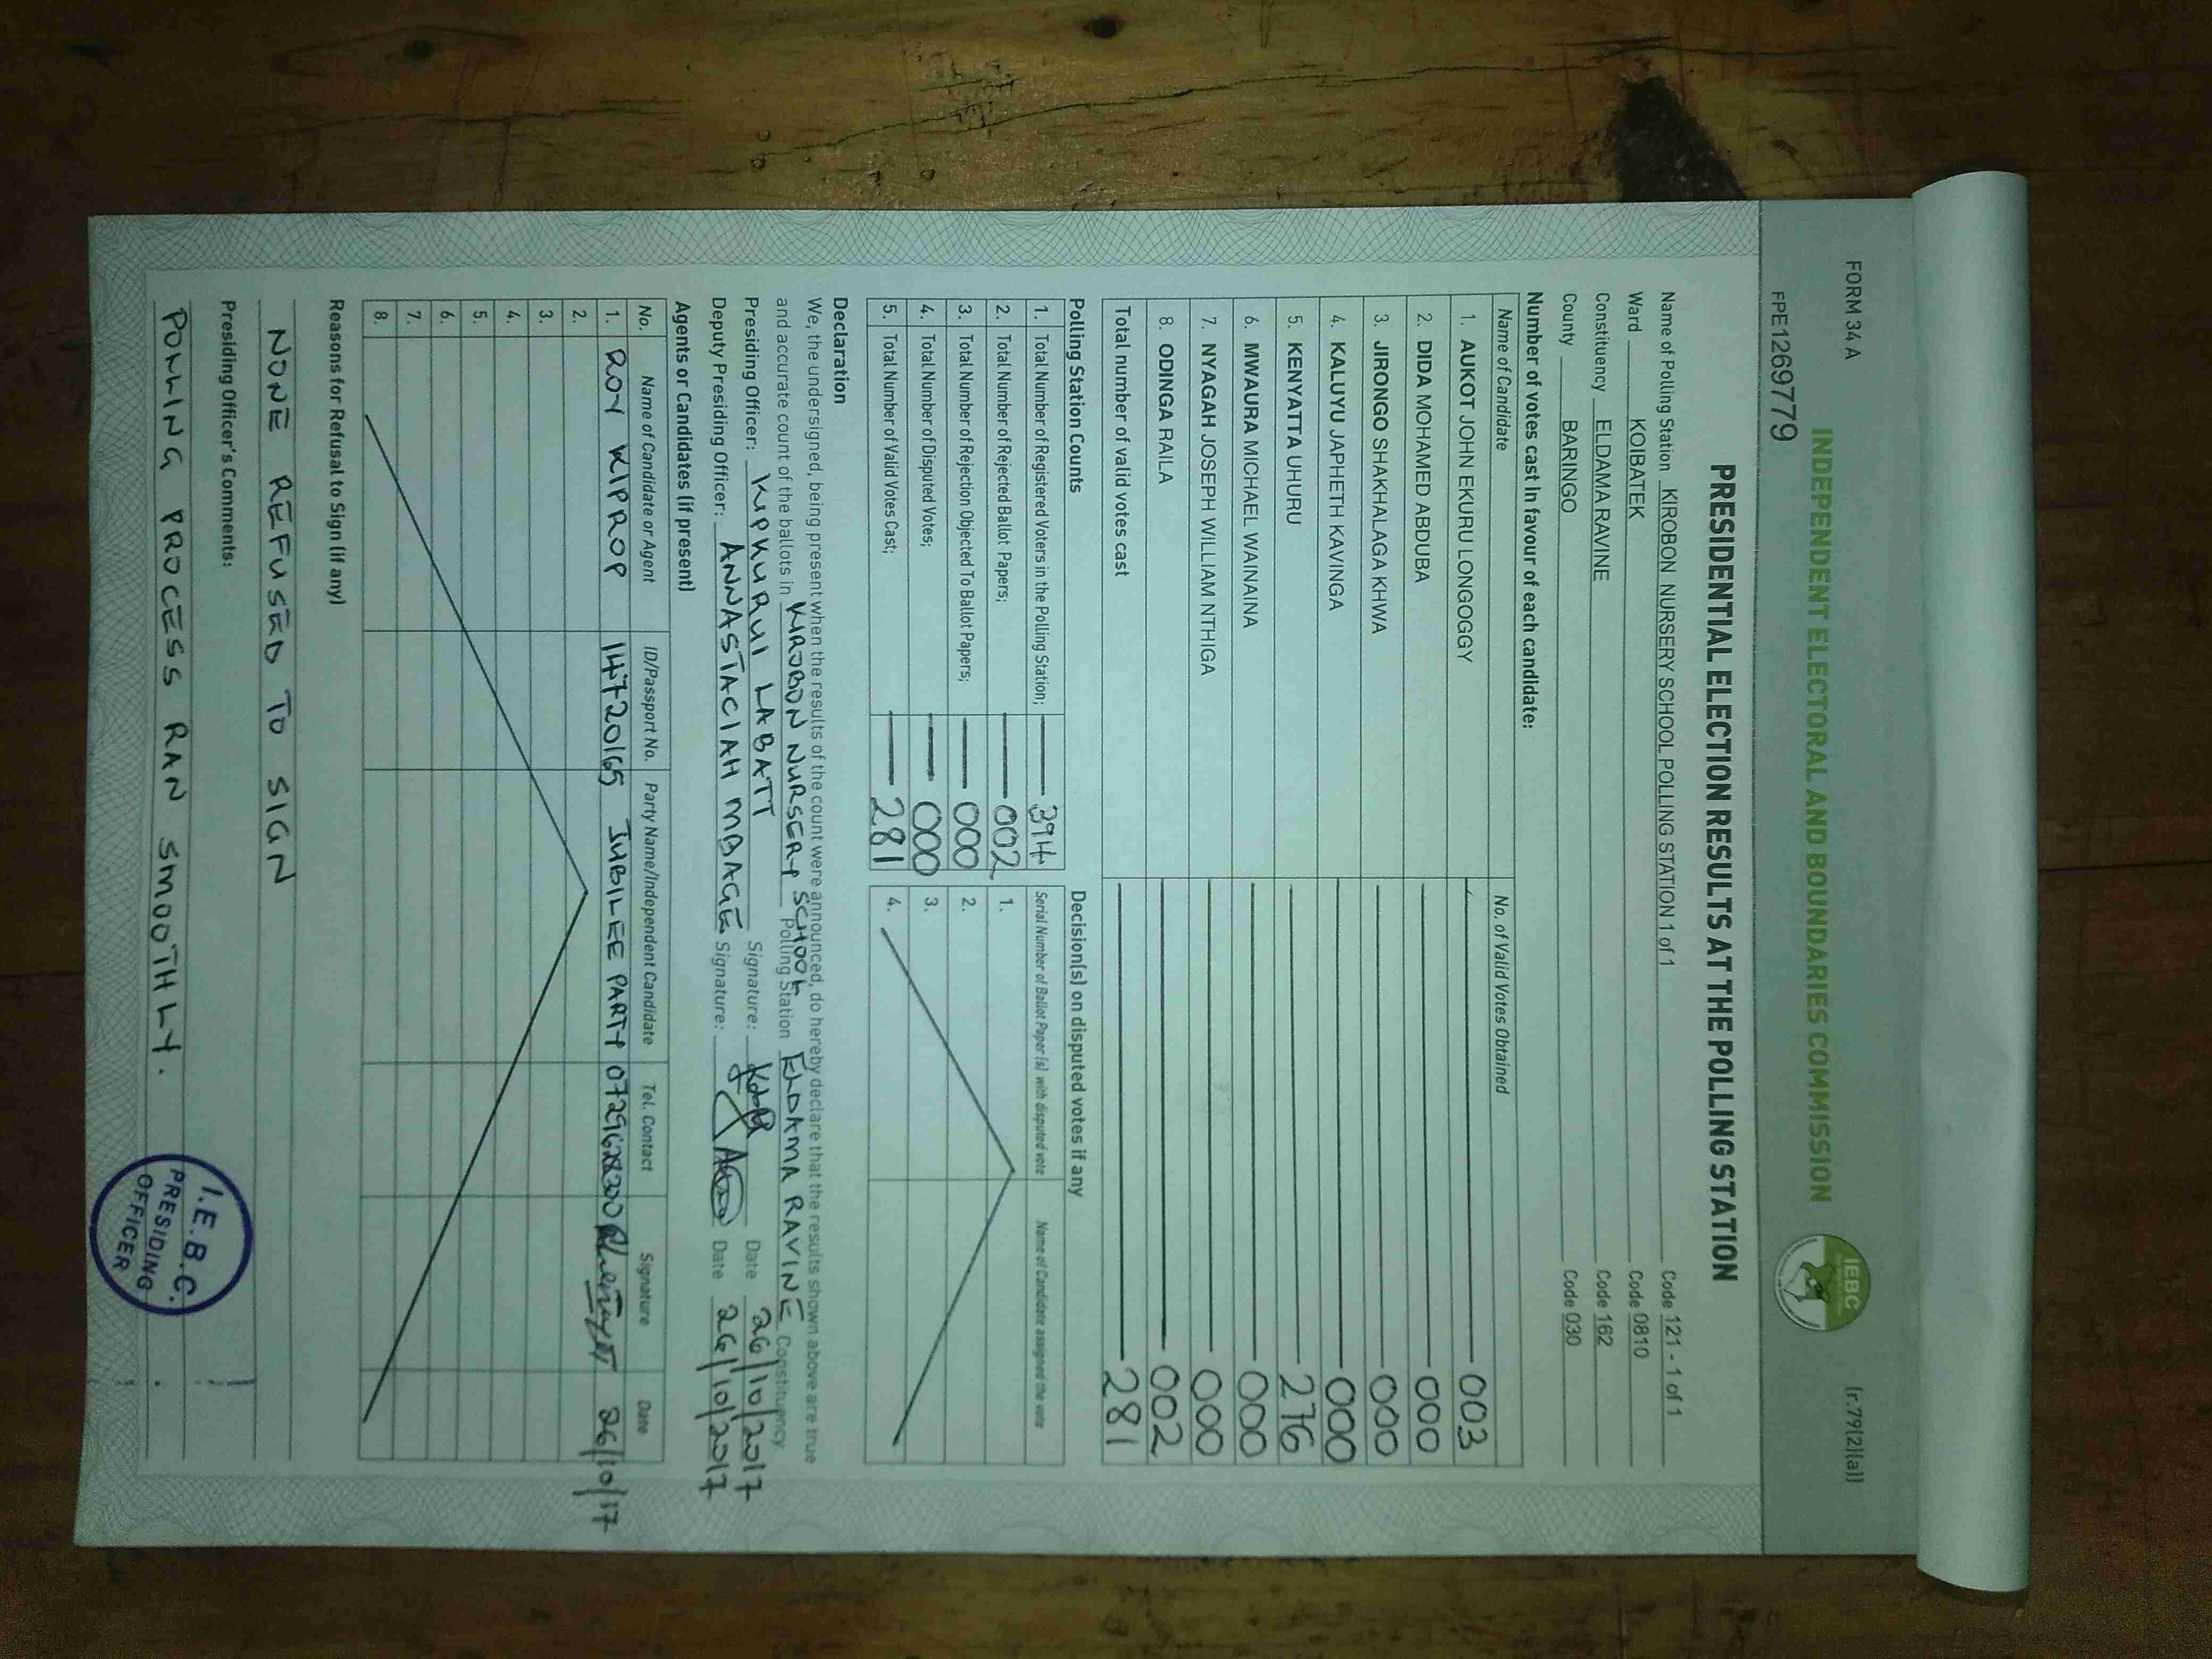 FORM 34 A
(r.79(2)(a))
INDEPENDENT ELECTORAL AND BOUNDARIES COMMISSION
IEBC
FPE1269779
PRESIDENTIAL ELECTION RESULTS AT THE POLLING STATION
Name of Polling Station KIROBON NURSERY SCHOOL POLLING STATION 1 of 1 Code 121 - 1 of 1
Ward KOIBATEK Code 0810
Constituency ELDAMA RAVINE Code 162
County BARINGO Code 030
Number of votes cast in favour of each candidate:
Name of Candidate No. of Valid Votes Obtained
1. AUKOT JOHN EKURU LONGOGGY 003
2. DIDA MOHAMED ABDUBA 000
3. JIRONGO SHAKHALAGA KHWA 000
4. KALUYU JAPHETH KAVINGA 000
5. KENYATTA UHURU 276
6. MWAURA MICHAEL WAINAINA 000
7. NYAGAH JOSEPH WILLIAM NTHIGA 000
8. ODINGA RAILA 002
Total number of valid votes cast 281
Polling Station Counts
1. Total Number of Registered Voters in the Polling Station; 394
2. Total Number of Rejected Ballot Papers; 002
3. Total Number of Rejection Objected To Ballot Papers; 000
4. Total Number of Disputed Votes; 000
5. Total Number of Valid Votes Cast; 281
Decision(s) on disputed votes if any
Serial Number of Ballot Paper (s) with disputed vote Name of Candidate assigned the vote
1.
2.
3.
4.
Declaration
We, the undersigned, being present when the results of the count were announced, do hereby declare that the results shown above are true
and accurate count of the ballots in KIROBON NURSERY SCHOOL Polling Station ELDAMA RAVINE Constituency
Presiding Officer: KIPKURUI LABATT Signature: Date 26/10/2017
Deputy Presiding Officer: ANNASTACIAH MBAGE Signature: Date 26/10/2017
Agents or Candidates (if present)
No. Name of Candidate or Agent ID/Passport No. Party Name/Independent Candidate Tel. Contact Signature Date
1. ROY KIPROP 14720165 JUBILEE PARTY 0729628300 26/10/17
2.
3.
4.
5.
6.
7.
8.
Reasons for Refusal to Sign (if any)
NONE REFUSED TO SIGN
Presiding Officer's Comments:
POLLING PROCESS RAN SMOOTHLY.
I.E.B.C.
PRESIDING
OFFICER